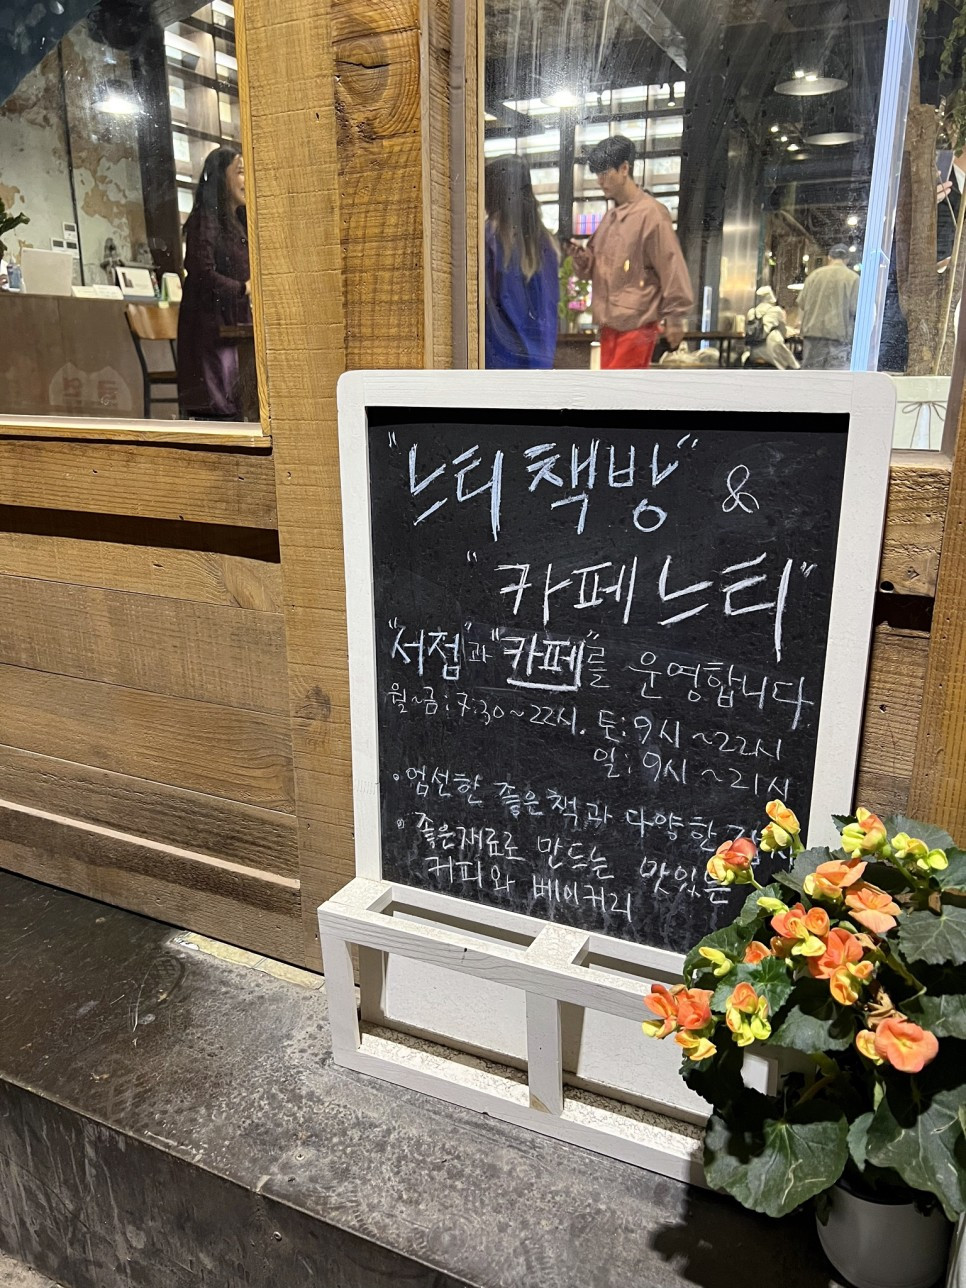 "느티책방" &
"카페느티"
"서점"과 "카페"를 운영합니다.
월~금: 7:30~22시. 토: 9시~22시
일: 9시~21시
• 엄선한 좋은책과 다양한
• 좋은재료로 만드는 맛있는
커피와 베이커리